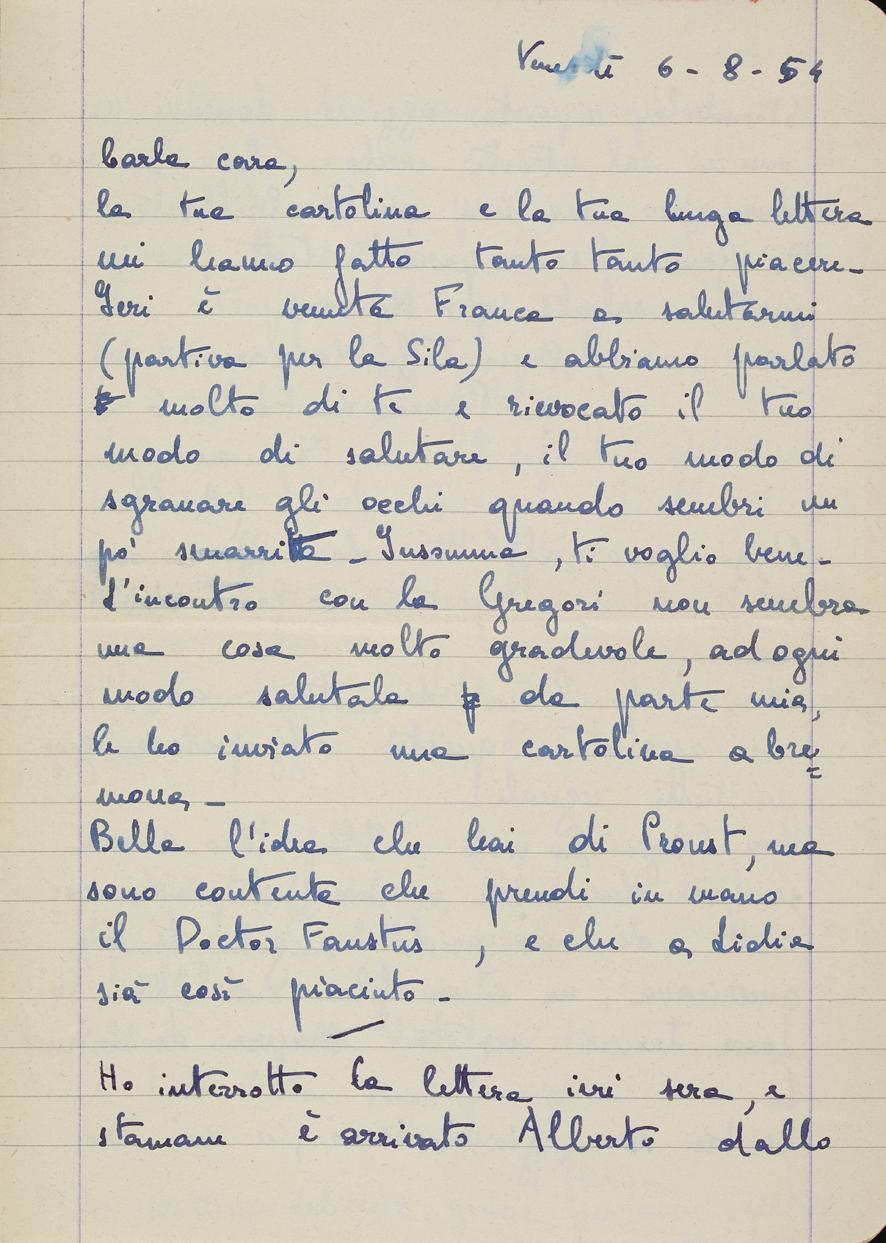 Venerdì 6-8-54
Carla cara,
la tua cartolina e la tua lunga lettera
mi hanno fatto tanto tanto piacere-
Ieri è venuta Franca a salutarmi
(partiva per la Sila) e abbiamo parlato
molto di te e rievocato il tuo
modo di salutare, il tuo modo di
sgranare gli occhi quando sembri un
po' smarrita - Insomma, ti voglio bene-
L'incontro con la Gregori non sembra
una cosa molto gradevole, ad ogni
modo salutala da parte mia,
le ho inviato una cartolina a Cre=
mona -
Bella l'idea che hai di Proust, ma
sono contenta che prendi in mano
il Doctor Faustus, e che a Lidia
sia così piaciuto -
Ho interrotto la lettera ieri sera, e
stamane è arrivato Alberto dallo